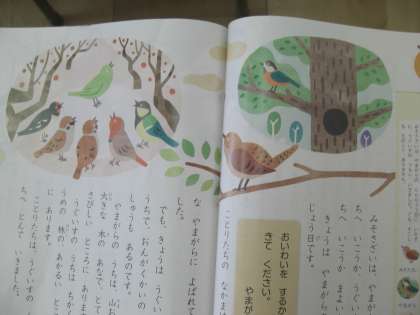 みそさざいは、やまが
ちへ いこうか、うぐい
ちへ いこうか まよい
きょうは やまがら
じょう日です。
おいわいを するか
きて ください。
やまが
ことりたちの なかま
な やまがらに よばれて
した。
でも、きょうは うぐい
うちで、おんがくかいの
しゅうも あるのです。
やまがらの うちは、山お
大きな 木の あなで、とて
さびしい ところに ありま
うぐいすの うちは、ちか
うめの 林の、あかるい と
に あります。
ことりたちは、うぐいすの
ちへ とんで いきました。